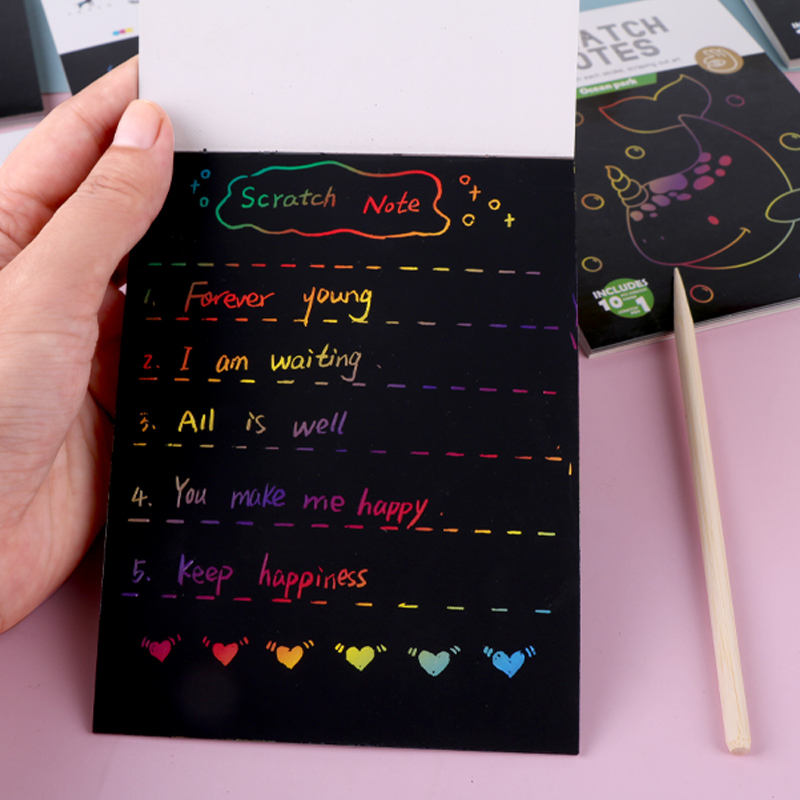 Scratch Note
1. Forever young
2. I am waiting.
3. All is well
4. You make me happy.
5. Keep happiness
ATCH
OTES
Ocean park
INCLUDES
10
1